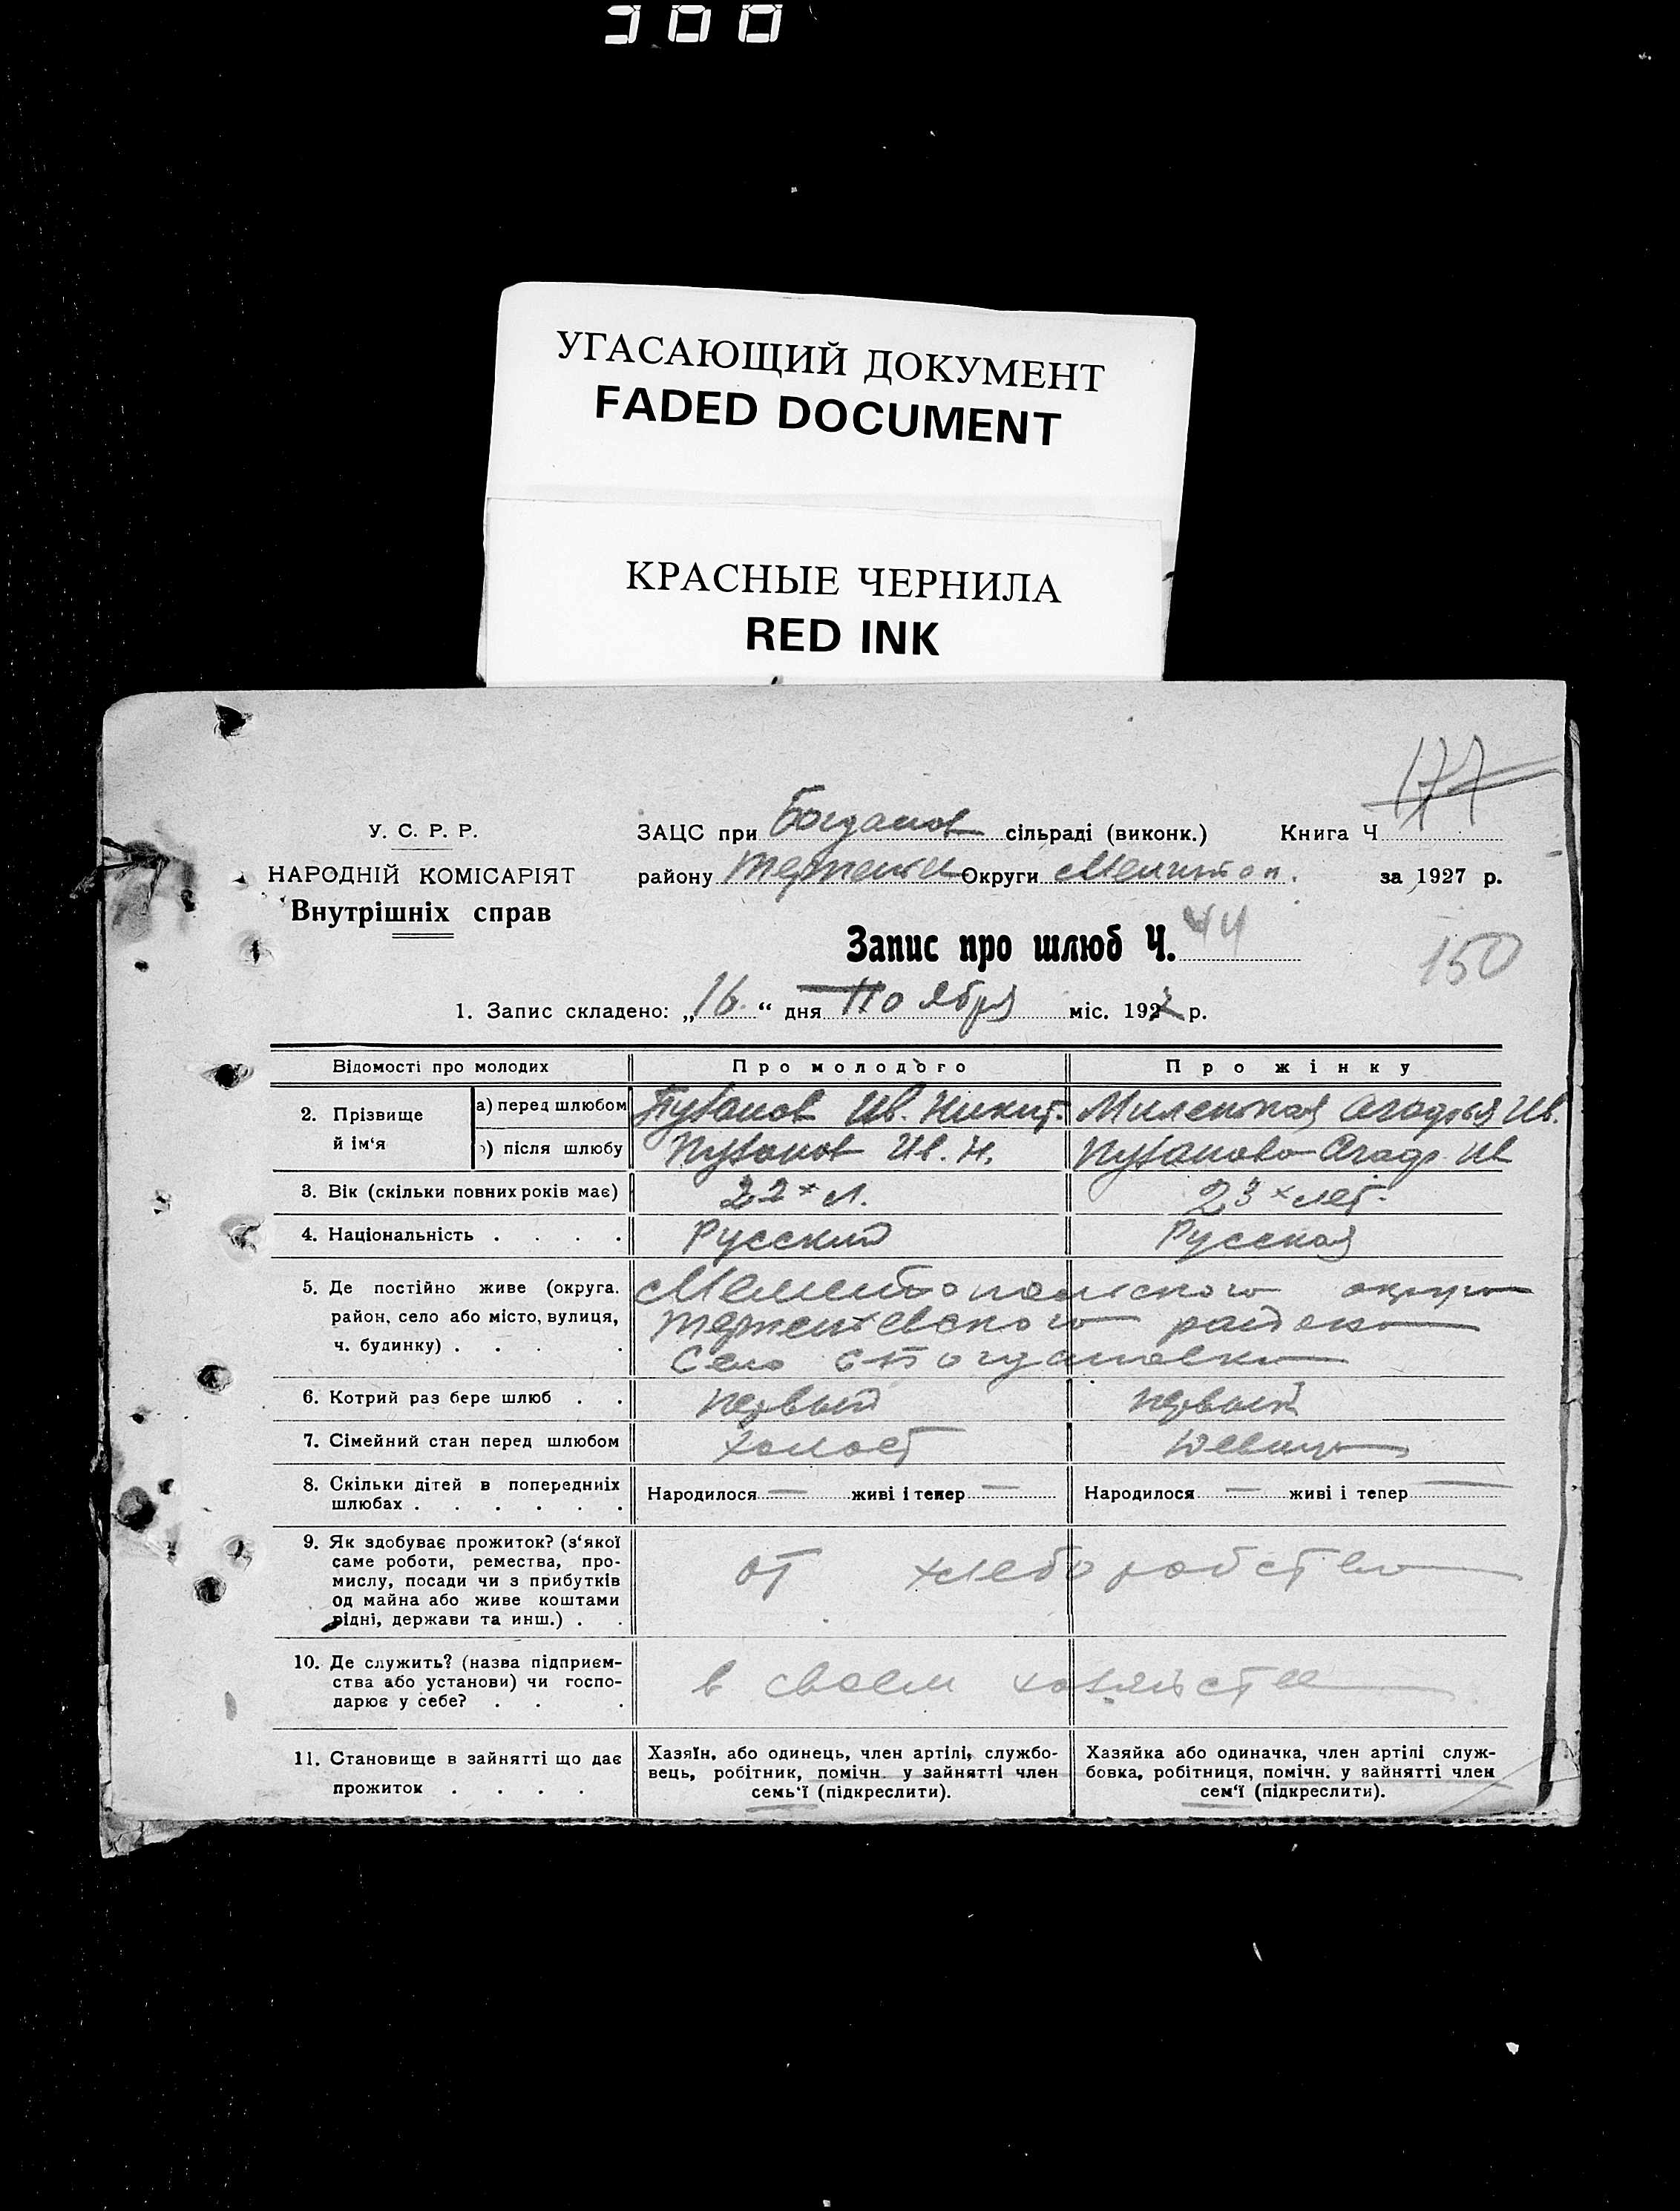 300
УГАСАЮЩИЙ ДОКУМЕНТ
FADED DOCUMENT
КРАСНЫЕ ЧЕРНИЛА
RED INK
177
У. С. Р. Р.
НАРОДНІЙ КОМІСАРІЯТ
Внутрішніх справ
ЗАЦС при Богданов сільраді (виконк.) Книга Ч
району Округи Мелитоп. за 1927 р.
Запис про шлюб Ч. 44
150
1. Запис складено: „16“ дня Ноября міс. 1927 р.
Відомості про молодих Про молодого Про жінку
2. Прізвище й ім‘я
а) перед шлюбом Пузанов Ив. Никит. Ив.
) після шлюбу Пузанов Ив. Н. Пузанова Агаф. Ив
3. Вік (скільки повних років має) 22х л. 23х лет.
4. Національність . . . . Русский Русская
5. Де постійно живе (округа. район, село або місто, вулиця, ч. будинку) . . .
Мелитопольского округа
района
Село Богдановка
6. Котрий раз бере шлюб . . первый первый
7. Сімейний стан перед шлюбом холост девица
8. Скільки дітей в попередніх шлюбах . . . . . .
Народилося — живі і тепер — Народилося — живі і тепер —
9. Як здобуває прожиток? (з‘якої
саме роботи, ремества, про-
мислу, посади чи з прибутків
од майна або живе коштами
рідні, держави та инш.) . .
от хлеборобства
10. Де служить? (назва підприєм-
ства або установи) чи госпо-
дарює у себе? . . .
в своем хозяйстве
11. Становище в зайнятті що дає
прожиток . . . .
Хазяїн, або одинець, член артілі, службо-
вець, робітник, помічн. у зайнятті член
семь‘ї (підкреслити).
Хазяйка або одиначка, член артілі служ-
бовка, робітниця, помічн. у зайнятті член
сем‘ї (підкреслити).